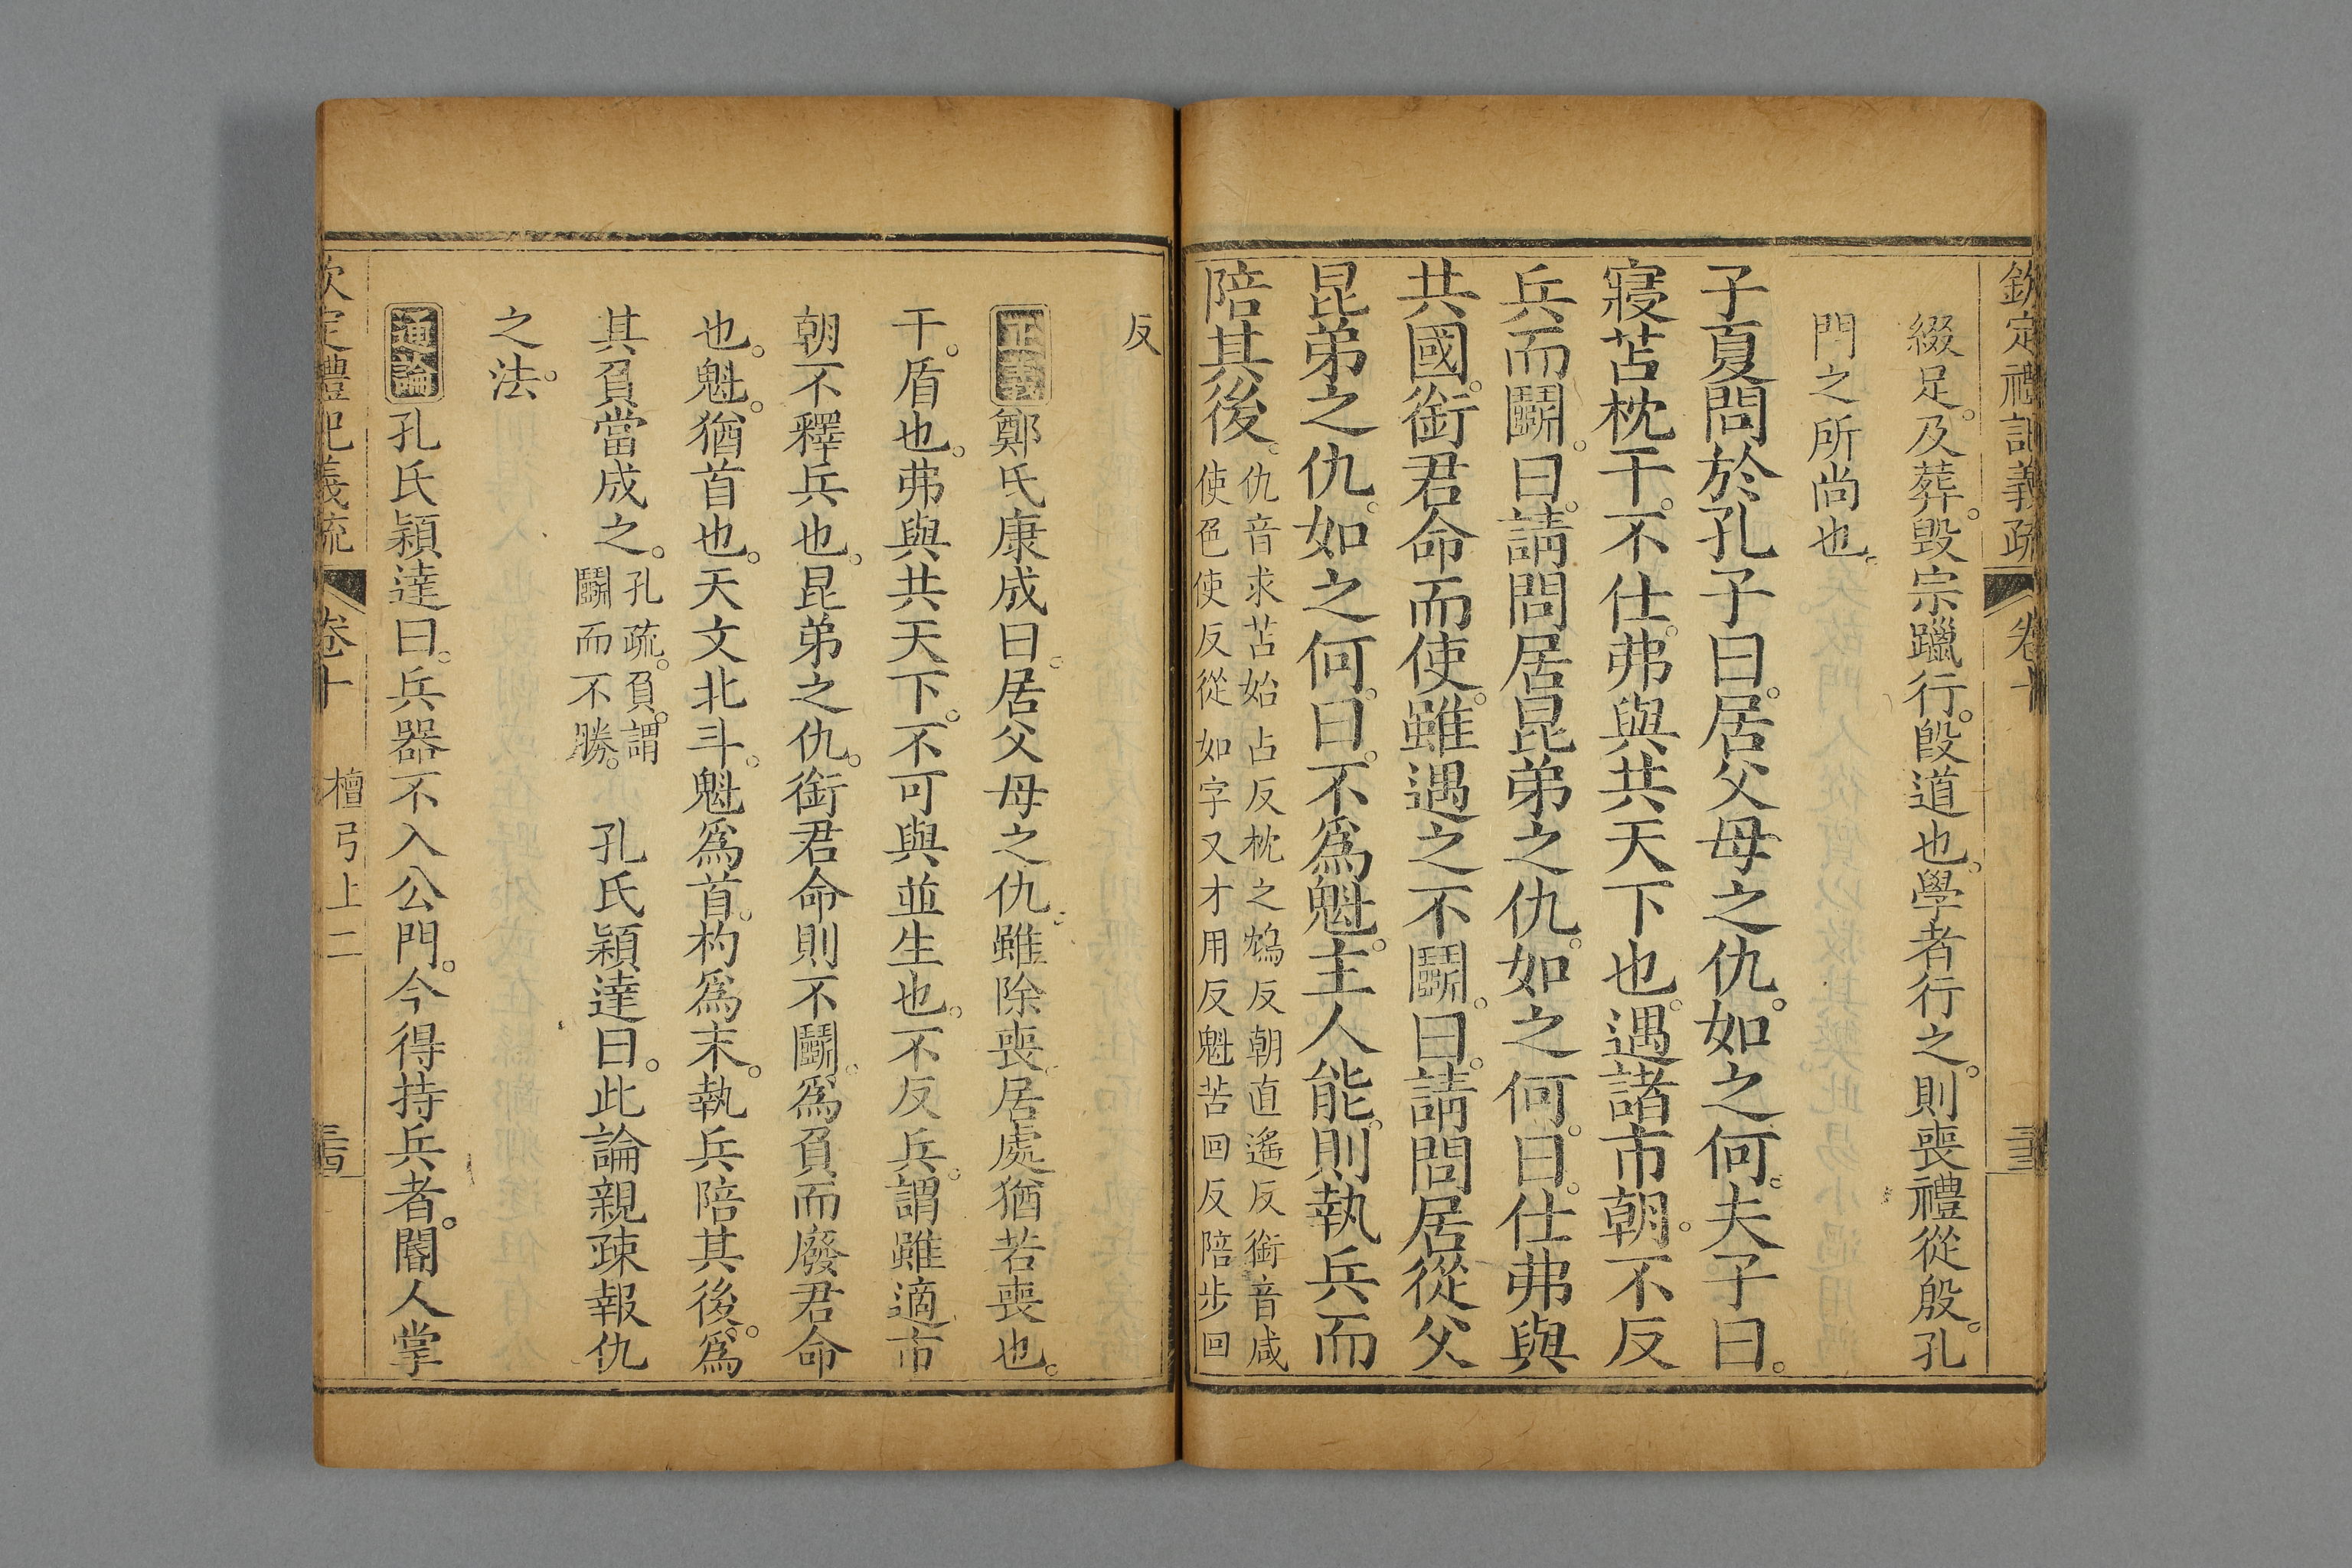 欽定禮記義疏 卷十
綴足。及葬。毀宗躐行。殷道也。學者行之。則喪禮從殷。孔
門之所尚也。
子夏問於孔子曰。居父母之仇。如之何。夫子曰。
寢苫枕干。不仕。弗與共天下也。遇諸市朝。不反
兵而鬬。曰。請問居昆弟之仇。如之何。曰。仕弗與
共國。銜君命而使。雖遇之不鬬。曰。請問居從父
昆弟之仇。如之何。曰。不爲魁。主人能。則執兵而
陪其後。
仇音求苫始占反枕之鴆反朝直遙反銜音咸
使色使反從如字又才用反魁苦回反陪步回
反
正義 鄭氏康成曰。居父母之仇。雖除喪。居處猶若喪也。
干。盾也。弗與共天下。不可與並生也。不反兵。謂雖適市
朝不釋兵也。昆弟之仇。銜君命則不鬬。爲負而廢君命
也。魁。猶首也。天文北斗。魁爲首。杓爲末。執兵陪其後。爲
其負當成之。
孔疏。負。謂
鬬而不勝。
孔氏穎達曰。此論親疎報仇
之法。
通論 孔氏穎達曰。兵器不入公門。今得持兵者。閽人掌
欽定禮記義疏 卷十 檀弓上二